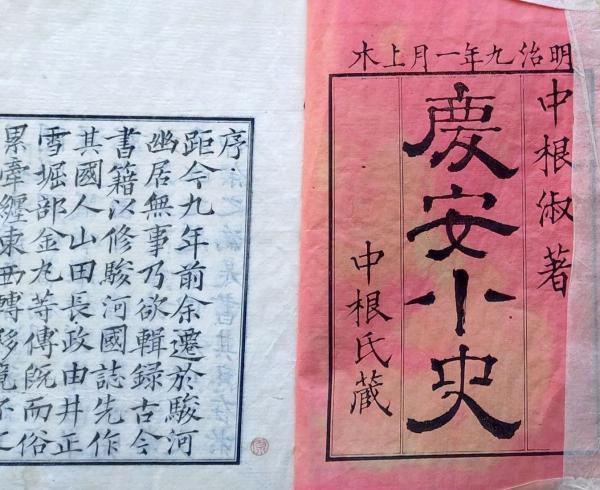 明治九年一月上木
中根淑著
慶安小史
中根氏藏
序
距今九年前余遷於駿河
幽居無事乃欲輯録古今
書籍以修駿河國誌先作
其國人山田長政由井正
雪堀部金丸等傳既而俗
累牽纏東西轉移竟不